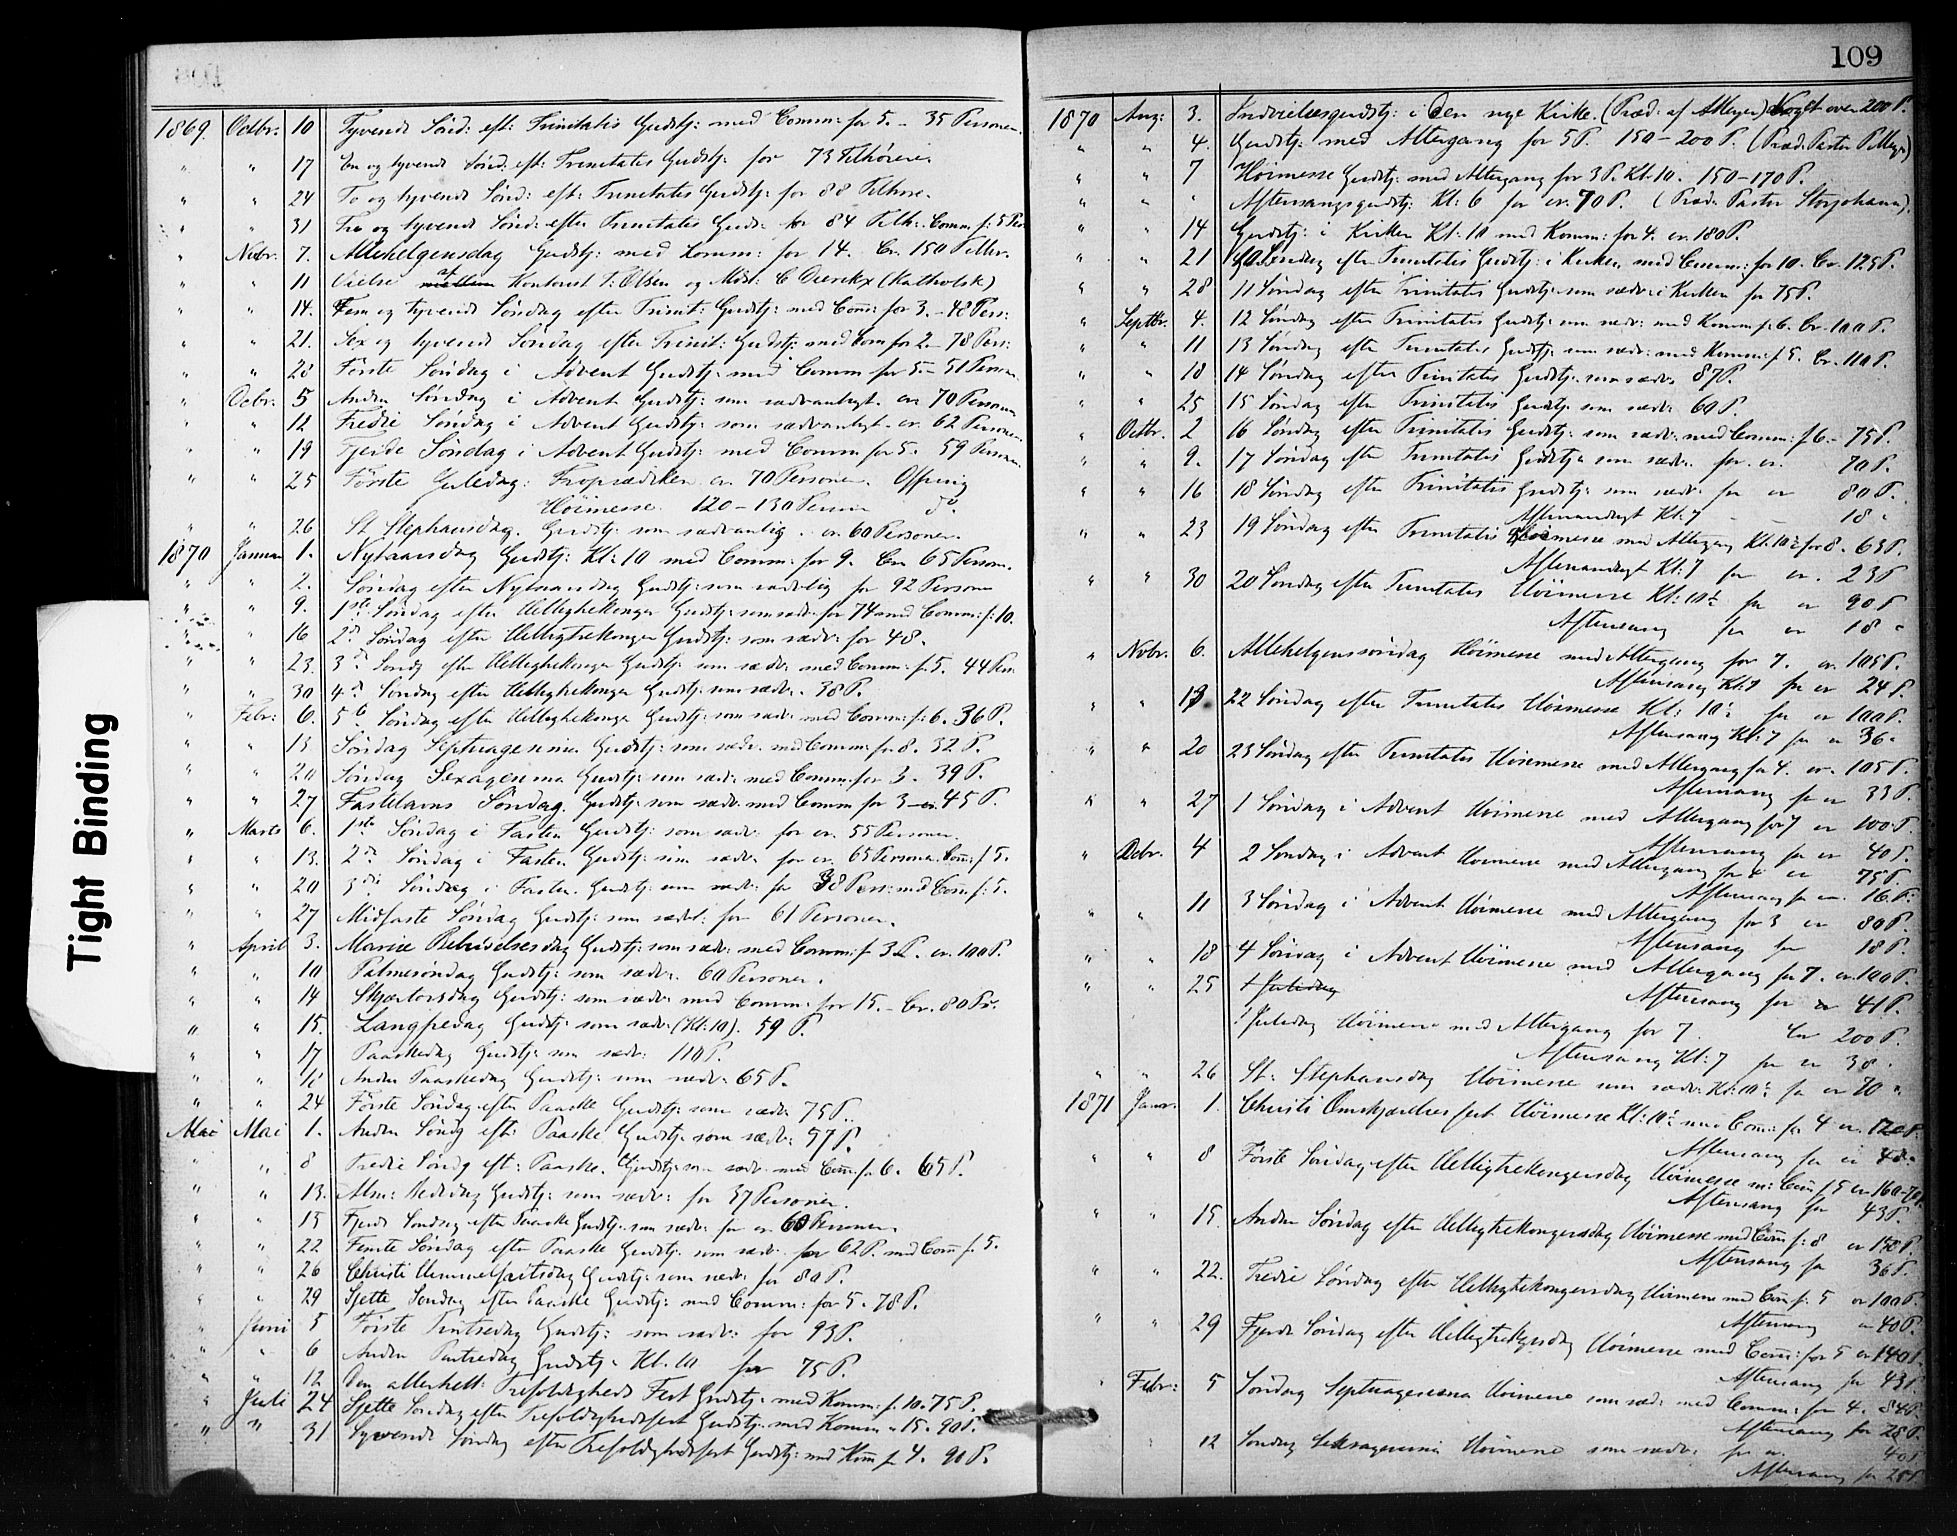 109
Tight Binding
1869. Octbr: 10 Tyvende Sönd: eft: Trinitatis Gudstj: med Comm: for 5. - 35 Personer.
" " 17 En og tyvende Sönd: eft: Trinitatis Gudstj: for 73 Tilhörere.
" " 24 To og tyvende Sönd: eft: Trinitatis Gudstj: for 88 Tilhöre.
" " 31 Tre og tyvende Sönd: efter Trinitatis Gudst: for 84 Tilh: Comm: f: 5 Per
" Novbr. 7. Allehelgensdag Gudstj: med Komm: for 14. Cr. 150 Tilhr.
" " 11 Vielse af Kontorist T. Olsen og Mds: C Dierckx (Katholsk)
" " 14. Fem og tyvende Söndag efter Trinit: Gudstj: med Com: for 3. - 48 Pers:
" " 21. Sex og tyvende Söndag efter Trinit: Gudstj: med Com for 2. - 78 Pers:
" " 28 Förste Söndag i Advent Gudstj: med Comm for 5 - 51 Person.
" Decbr: 5 Anden Söndag i Advent Gudstj: som sædvanligt. cr. 70 Personer
" " 12 Tredie Söndag i Advent Gudstj: som sædvanligt. cr. 62 Personer.
" " 19 Fjerde Söndag i Advent Gudstj: med Comm. for 5. 59 Person.
" " 25 Förste Juledag: Froprædiken cr. 70 Personer. Offring
Höimesse 120 - 130 Personer do.
" " 26 St Stephansdag. Gudstj: som sædvanlig. cr. 60 Personer.
1870 Januar 1. Nytaarsdag Gudstj: Kl: 10 med Comm: for 9. Cr. 65 Person.
" " 2. Söndag efter Nytaarsdag Gudstj: som sædvlig for 92 Personer
" " 9. 1ste Söndag efter Helligtrekonger Gudstj: som sædv: for 74 med Comm: f: 10.
" " 16 2d Söndag efter Helligtrekonger Gudstj: som sædv: for 48.
" " 23. 3d Söndg efter Helligtrekonger Gudstj: som sædv: med Comm: f: 5. 44 Per.
" " 30 4d Söndag efter Helligtrekonger Gudstj: som sædv: 38 P.
" Febr: 6. 5te Söndag efter Helligtrekonger Gudstj: som sædv: med Comm: f: 6. 36 P.
" " 13 Söndag Septuagesima Gudstj: som sædv: med Comm: for 8. 32 P.
" " 20 Söndag Sexagesima Gudstj: som sædv: med Comm: for 3. 39 P.
" " 27 Fastelavns Söndag. Gudstj: som sædv: med Comm for 3 - cr. 45 P.
" Marts 6. 1ste Söndag i Fasten Gudstj: som sædv: for cr. 55 Personer.
" " 13. 2den Söndag i Fasten Gudstj: som sædv: for cr. 65 Personer. Com: f 5.
" " 20 3die Söndag i Fasten. Gudstj: som sædv: for 38 Pers: med Com: f: 5.
" " 27 Midfaste Söndag Gudstj: som sædv: for 61 Personer.
" April 3. Mariæ Bebudelsesdag Gudstj: som sædv: med Comm: f 3 P. cr. 100 P.
" " 10 Palmesöndag Gudstj: som sædv: 60 Personer.
" " 14 Skjærtorsdag Gudstj: som sædv: med Comm: for 15. - Cr. 80 Pr.
" " 15. Langfredag Gudstj: som sædv: (Kl: 10). 59 P.
" " 17 Paaskedag Gudstj: som sædv: 110 P.
" " 18 Anden Paaskedag Gudstj: som sædv: 65 P.
" " 24 Förste Söndag efter Paaske Gudstj: som sædv: 75 P.
Mai Mai 1. Anden Söndg eft: Paaske Gudstj: som sædv: 57 P.
" " 8 Tredie Söndg eft: Paaske. Gudstj: som sædv: med Com: f: 6. 65 P.
" " 13. Alm: Bededag Gudstj: som sædv: for 37 Personer.
" " 15 Fjerde Söndag efter Paaske Gudstj: som sædv: for cr. 60 Personer.
" " 22 Femte Söndag efter Paaske Gudstj: som sædv: for 62 P. med Com: f. 5.
" " 26 Christi Himmelfartsdag Gudstj: som sædv: for 80 P.
" " 29 Sjette Söndag efter Paaske Gudstj: med Comm: for 5. 78 P.
" Juni 5 Förste Pintsedag Gudstj: som sædv: for 93 P.
" " 6 Anden Pintsedag Gudstj: Kl. 10 for 75 P.
" " 12 Den allerhell: Trefoldigheds Fest Gudstj: med Komm: f. 10. 75 P.
" Juli 24 Sjette Söndag efter Trefoldighedsfest Gudstj: med Komm " 15. 90 P.
" " 31 Syvende Söndag efter Trefoldighedsfest Gudstj: med Kom f 4. 90 P.
1870 Aug: 3. Indvielsesgudstj: i den nye Kirke. (Præd: af Meyer) Noget over 200 P.
" " 4. Gudstj: med Altergang for 5 P. 150 - 200 P. (Præd: Pastor P. Meyer)
" " 7 Höimesse Gudstj: med Altergang for 3 P. Kl: 10. 150 - 170 P.
" " " Aftensangsgudstj: Kl: 6 for cr. 70 P. (Præd: Pastor Storjohann).
" " 14 Gudstj: i Kirken Kl: 10 med Komm: for 4. cr. 180 P.
" " 21 10 Söndag efter Trinitatis Gudstj: i Kirken med Comm: for 10. Cr. 125 P.
" " 28 11 Söndag efter Trinitatis Gudstj: som sædv: i Kirken for 75 P.
" Septbr. 4. 12 Söndag efter Trinitatis Gudstj: som sædv: med Komm f: 6. Cr. 100 P.
" " 11 13 Söndag efter Trinitatis Gudstj: som sædv: med Komm: f 5. Cr. 110 P.
" " 18 14 Söndag efter Trinitatis Gudstj: som sædv: 87 P.
" " 25 15 Söndag efter Trinitatis Gudstj: som sædv: 60 P.
" Octbr. 2 16 Söndag efter Trinitatis Gudstj: som sædv: med Comm: f 6. - 75 P.
" " 9. 17 Söndag efter Trinitatis Gudstj: som sædv: for cr. 70 P.
" " 16 18 Söndag efter Trinitatis Gudstj: som sædv: for cr 80 P.
Aftenandagt Kl: 7 - - 18 "
" " 23 19 Söndag efter Trinitatis Höimesse med Altergang Kl: 10½ for 8. 63 P.
Aftenandagt Kl: 7 for cr. 23 P
" " 30 20 Söndag efter Trinitatis Höimesse Kl: 10½ for cr 90 P
Aftensang for cr 18 "
" Novbr. 6. Allehelgenssöndag Höimesse med Altergang for 7. cr. 105 P.
Aftensang Kl: 7 for cr 24 P.
" " 13 22 Söndag efter Trinitatis Höimesse Kl: 10½ for cr 100 P.
Aftensang Kl: 7 for cr 36 "
" " 20 23 Söndag efter Trinitatis Höimesse med Altergang for 4. cr. 105 P.
Aftensang for cr 33 P.
" " 27 1 Söndag i Advent Höimesse med Altergang for 7 cr 100 P.
Aftensang for cr 40 P.
" Decbr. 4 2 Söndag i Advent Höimesse med Altergang for 4 cr 75 P.
Aftensang for cr. 16 P.
" " 11 3 Söndag i Advent Höimesse med Altergang for 3 cr 80 P.
Aftensang for 18 P.
" " 18 4 Söndag i Advent Höimesse med Altergang for 7. cr. 100 P.
Aftensang for cr 41 P.
" " 25 1 Juledag
1 Juledag Höimesse med Altergang for 7. Cr 200 P.
Aftensang Kl: 7 for cr 38 "
" " 26 St: Stephansdag Höimesse som sædv: Kl: 10½ for cr 70 "
1871 Janr. 1. Christi Omskjærelses fest Höimesse Kl: 10½ med Com: for 4 cr. 120 P.
Aftensang for cr 40 "
" " 8 Förste Söndag efter Helligtrekongersdag Höimesse m: Com f 5 cr 160-70
Aftensang for 43 P.
" " 15. Anden Söndag efter Helligtrekongersdag Höimesse med Com f: 8 cr 150 P.
Aftensang for 36 P.
" " 22. Tredie Söndag efter Helligtrekongersdag Höimesse med Com f: 5 cr 100 P.
Aftensang cr 40 P.
" " 29 Fjerde Söndag efter Helligtrekgrsdag Höimesse med Com: for 5 cr 140 P.
Aftensang for 43 P.
" Febr: 5 Söndag Septuagesima Höimesse som sædv: med Comm: for 4. 84 P.
Aftensang for 28 P.
" 12 Söndag Seksagesima Höimesse som sædv: for cr. 40 P.
Aftensang for 25 P.